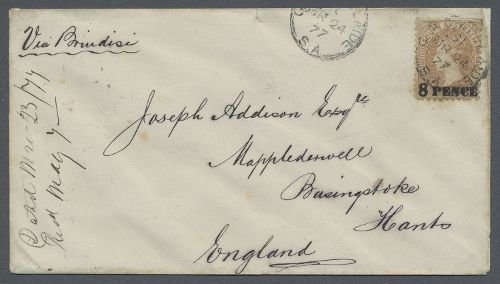 Via Brindisi
Joseph Addison Esqre
Mapplederwell
Basingstoke
Hants
England
Dated Mar 23/77
Recd May 7
ADELAIDE
MR 24
77
S.A.
8 PENCE
77